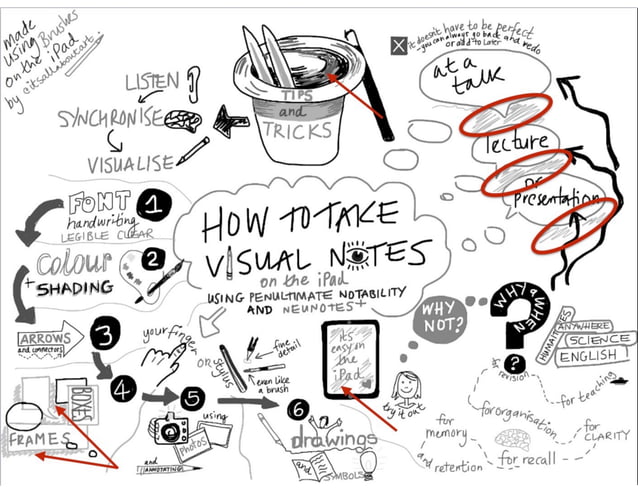 made
using Brushes
on the iPad
by @itsallaboutart
LISTEN
SYNCHRONISE
VISUALISE
TIPS
and
TRICKS
it doesnt have to be perfect
you can always go back and redo
or add to later
at a
talk
lecture
or
presentation
FONT 1
handwriting
LEGIBLE CLEAR
Colour 2
+ SHADING
ARROWS 3
and connectors
4
BOXES
FRAMES
HOW TO TAKE
VISUAL NOTES
on the iPad
USING PENULTIMATE NOTABILITY
AND NEUNOTES+
your finger
OR stylus
fine
detail
even like
a brush
5
using
photos
and
ANNOTATING
6
drawings
and
SYMBOLS
It's
easy on
the
iPad
WHY
NOT?
try it out
WHY & WHEN
?
HUMANITIES
ANYWHERE
SCIENCE
ENGLISH
for
revision
for teaching
for organisation
for
CLARITY
for
memory
and
retention
for recall